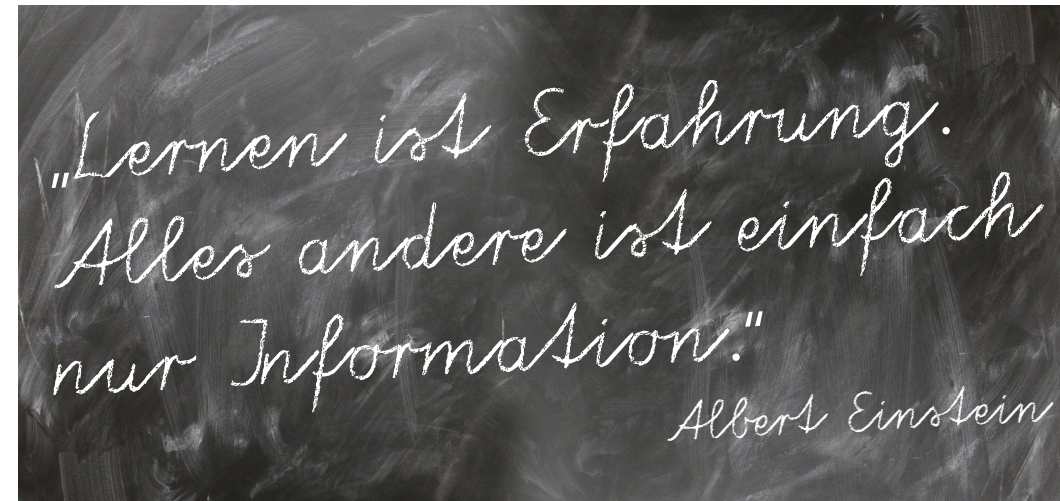 „Lernen ist Erfahrung.
Alles andere ist einfach
nur Information."
Albert Einstein